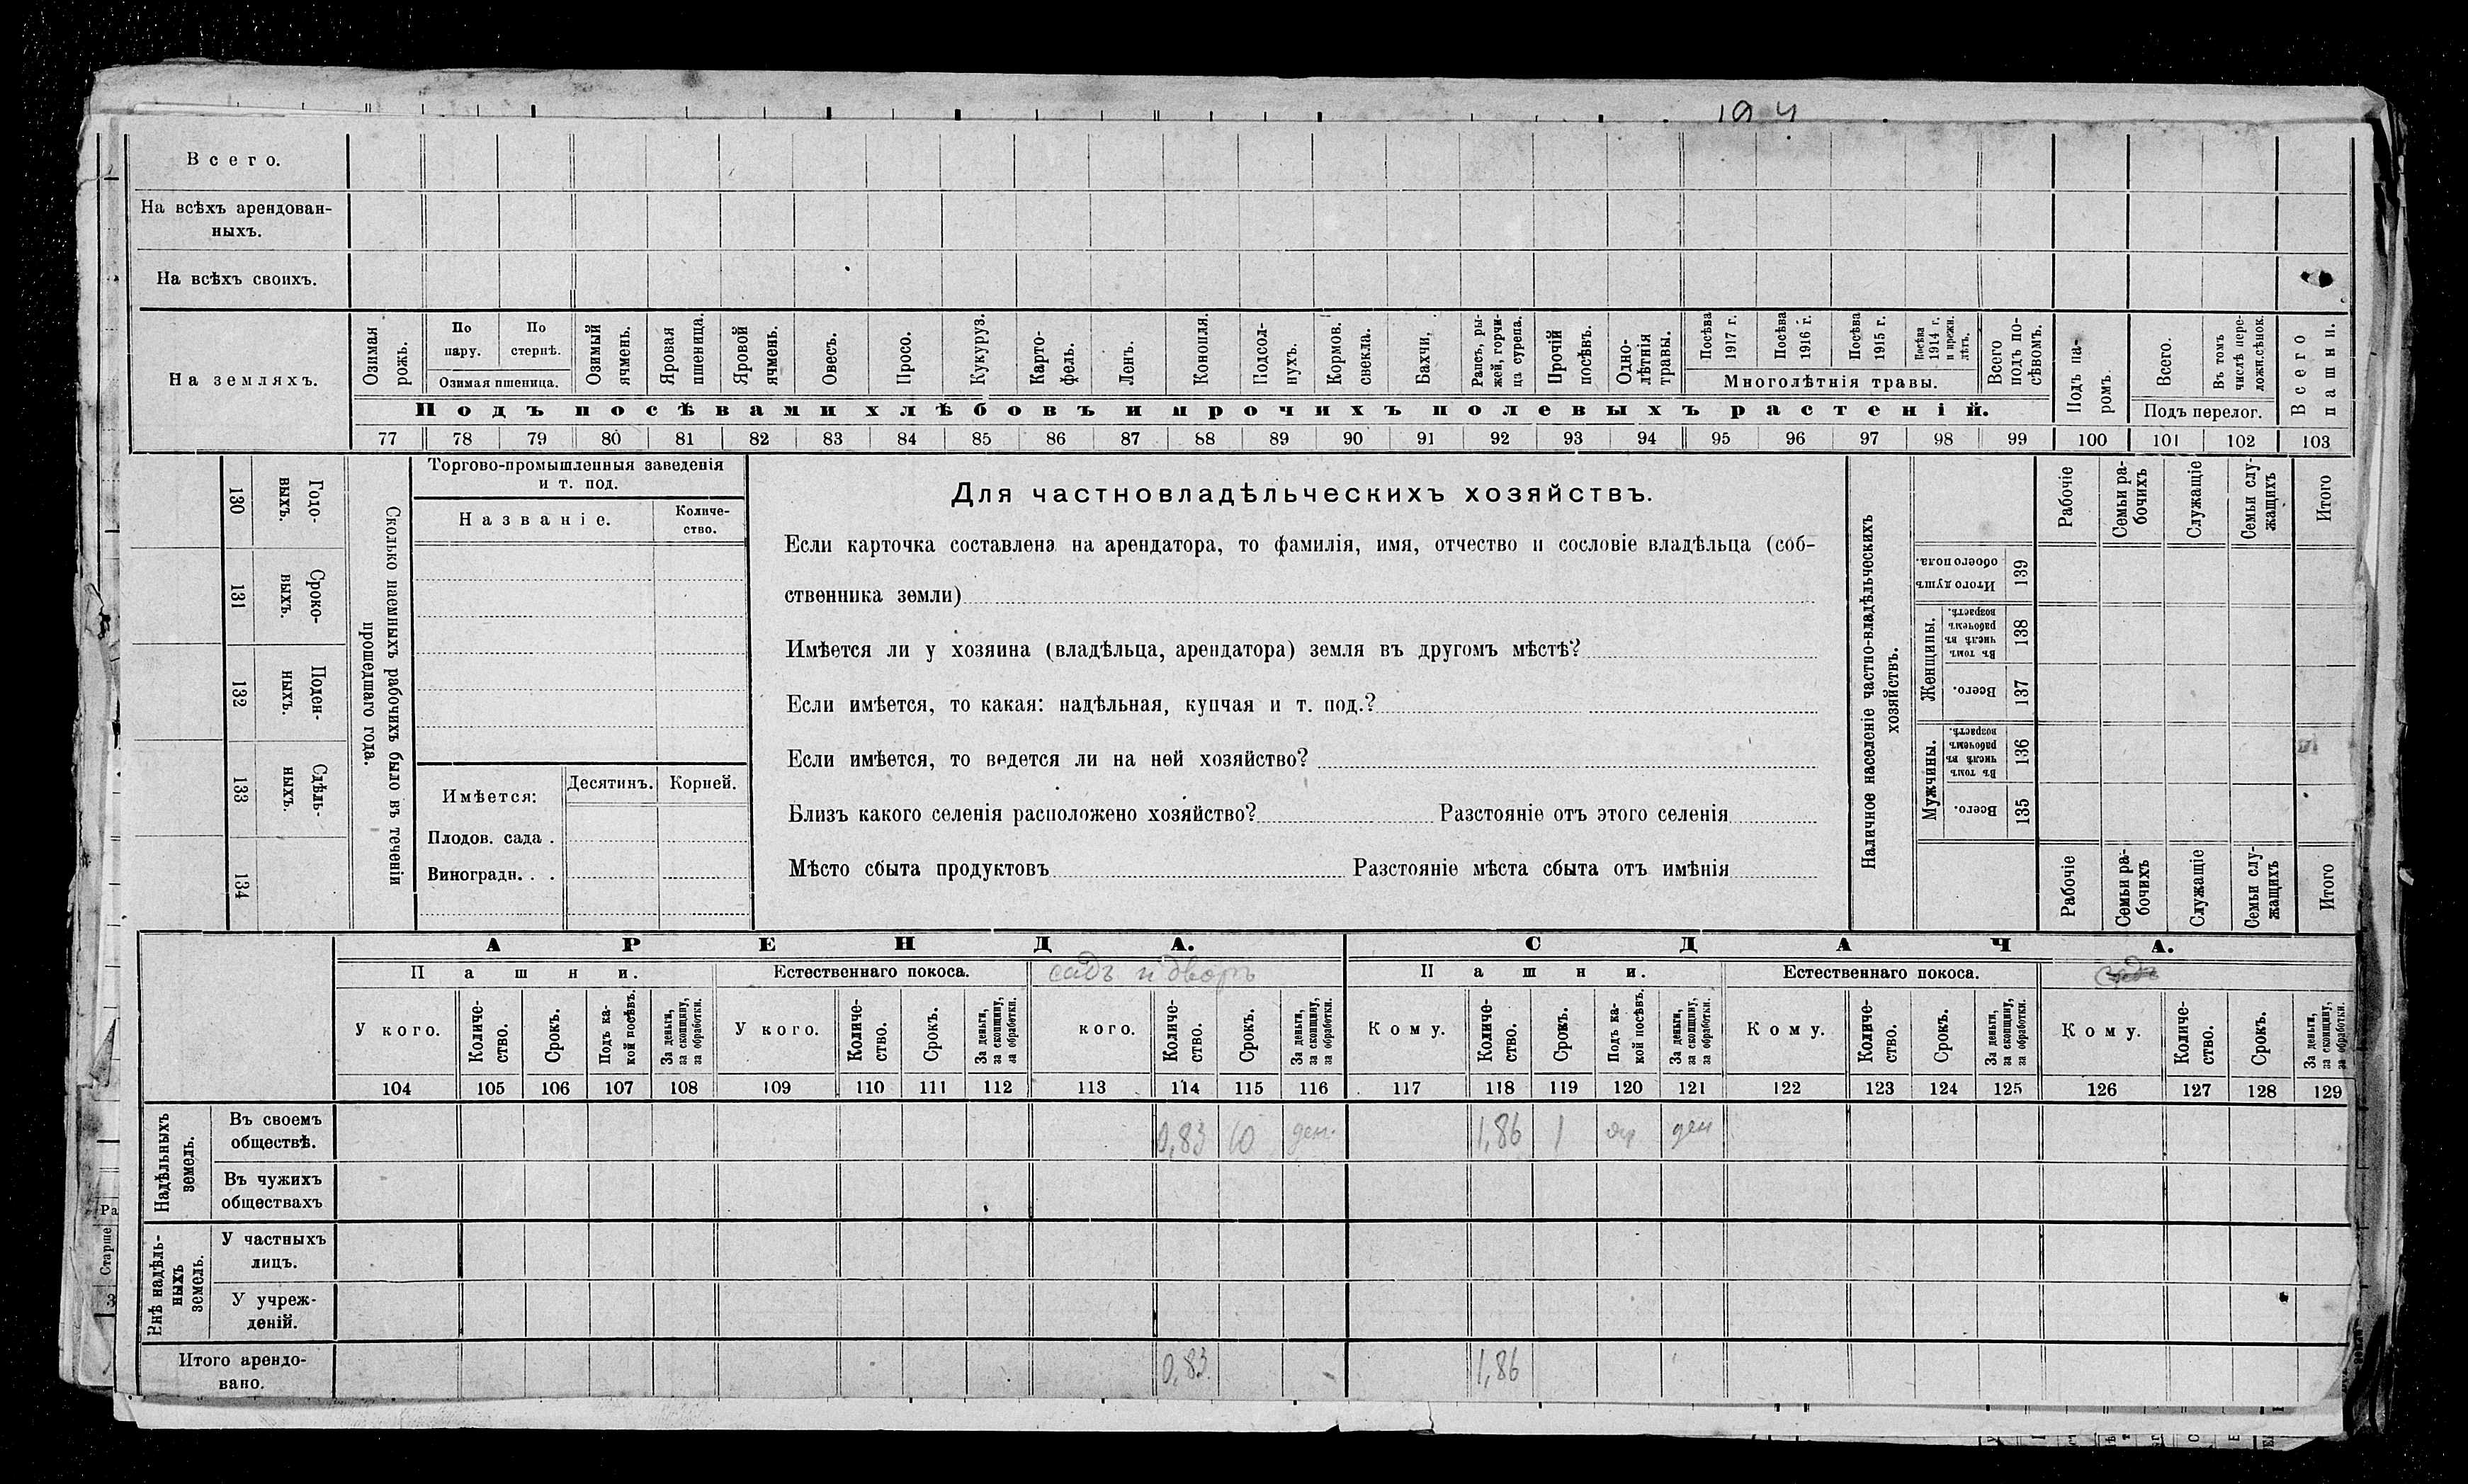 В с е г о.
На всѣхъ арендован-
ныхъ.
На всѣхъ своихъ.
На земляхъ.
Озимая рожь.
По пару.
По стернѣ.
Озимая пшеница.
Озимый ячмень.
Яровая пшеница.
Яровой ячмень.
Овесъ.
Просо.
Кукуруз.
Карто-
фель.
Ленъ.
Конопля.
Подсол-
нухъ.
Кормов. свекла.
Бахчи,
Рапсъ, ры-
жей, горчи-
ца сурепа.
Прочій посѣвъ.
Одно-
лѣтнія травы.
Посѣва 1917 г.
Посѣва 1916 г.
Посѣва 1915 г.
Посѣва 1914 г. и прежн. лѣтъ.
Многолѣтнія травы.
Всего подъ по-
сѣвомъ.
Подъ па-
ромъ.
Всего.
Въ томъ числѣ пере-
ложн.сѣнок.
Подъ перелог.
Всего пашни.
Подъ посѣвами хлѣбовъ и прочихъ полевыхъ растеній.
77 78 79 80 81 82 83 84 85 86 87 88 89 90 91 92 93 94 95 96 97 98 99 100 101 102 103
130 131 132 133 134
Годо-
выхъ.
Сроко-
выхъ.
Поден-
ныхъ.
Сдѣль-
ныхъ.
Сколько наемныхъ рабочихъ было въ теченіи
прошедшаго года.
Торгово-промышленныя заведенія
и т. под.
Названіе.
Количе-
ство.
Имѣется:
Десятинъ.
Корней.
Плодов. сада .
Виноградн. . .
Для частновладѣльческихъ хозяйствъ.
Если карточка составлена на арендатора, то фамилія, имя, отчество и сословіе владѣльца (соб-
ственника земли)
Имѣется ли у хозяина (владѣльца, арендатора) земля въ другомъ мѣстѣ?
Если имѣется, то какая: надѣльная, купчая и т. под.?
Если имѣется, то ведется ли на ней хозяйство?
Близъ какого селенія расположено хозяйство? Разстояніе отъ этого селенія
Мѣсто сбыта продуктовъ Разстояніе мѣста сбыта отъ имѣнія
Наличное населеніе частно-владѣльческихъ
хозяйствъ.
Рабочіе
Семьи ра-
бочихъ
Служащіе
Семьи слу-
жащихъ
Итого
Итого душъ обоего пола.
139
Женщины.
Въ томъ числѣ въ рабочемъ возрастѣ.
138
Всего.
137
Мужчины.
Въ томъ числѣ въ рабочемъ возрастѣ.
136
Всего.
135
Рабочіе
Семьи ра-
бочихъ
Служащіе
Семьи слу-
жащихъ
Итого
АРЕНДА.
СДАЧА.
Пашни.
Естественнаго покоса.
садъ и дворъ
Пашни.
Естественнаго покоса.
садъ
У кого.
Количе-
ство.
Срокъ.
Подъ ка-
кой посѣвъ.
За деньги,
за скопщину,
за обработки.
У кого.
Количе-
ство.
Срокъ.
За деньги,
за скопщину,
за обработки.
кого.
Количе-
ство.
Срокъ.
За деньги,
за скопщину,
за обработки.
Кому.
Количе-
ство.
Срокъ.
Подъ ка-
кой посѣвъ.
За деньги,
за скопщину,
за обработки.
Кому.
Количе-
ство.
Срокъ.
За деньги,
за скопщину,
за обработки.
Кому.
Количе-
ство.
Срокъ.
За деньги,
за скопщину,
за обработки.
104 105 106 107 108 109 110 111 112 113 114 115 116 117 118 119 120 121 122 123 124 125 126 127 128 129
Надѣльныхъ земель.
Въ своемъ
обществѣ.
0,83 10 ден. 1,86 1 ден
Въ чужихъ
обществахъ
Внѣ надѣль-
ныхъ земель.
У частныхъ
лицъ.
У учреж-
деній.
Итого арендо-
вано.
0,83 1,86
Ра
Старше